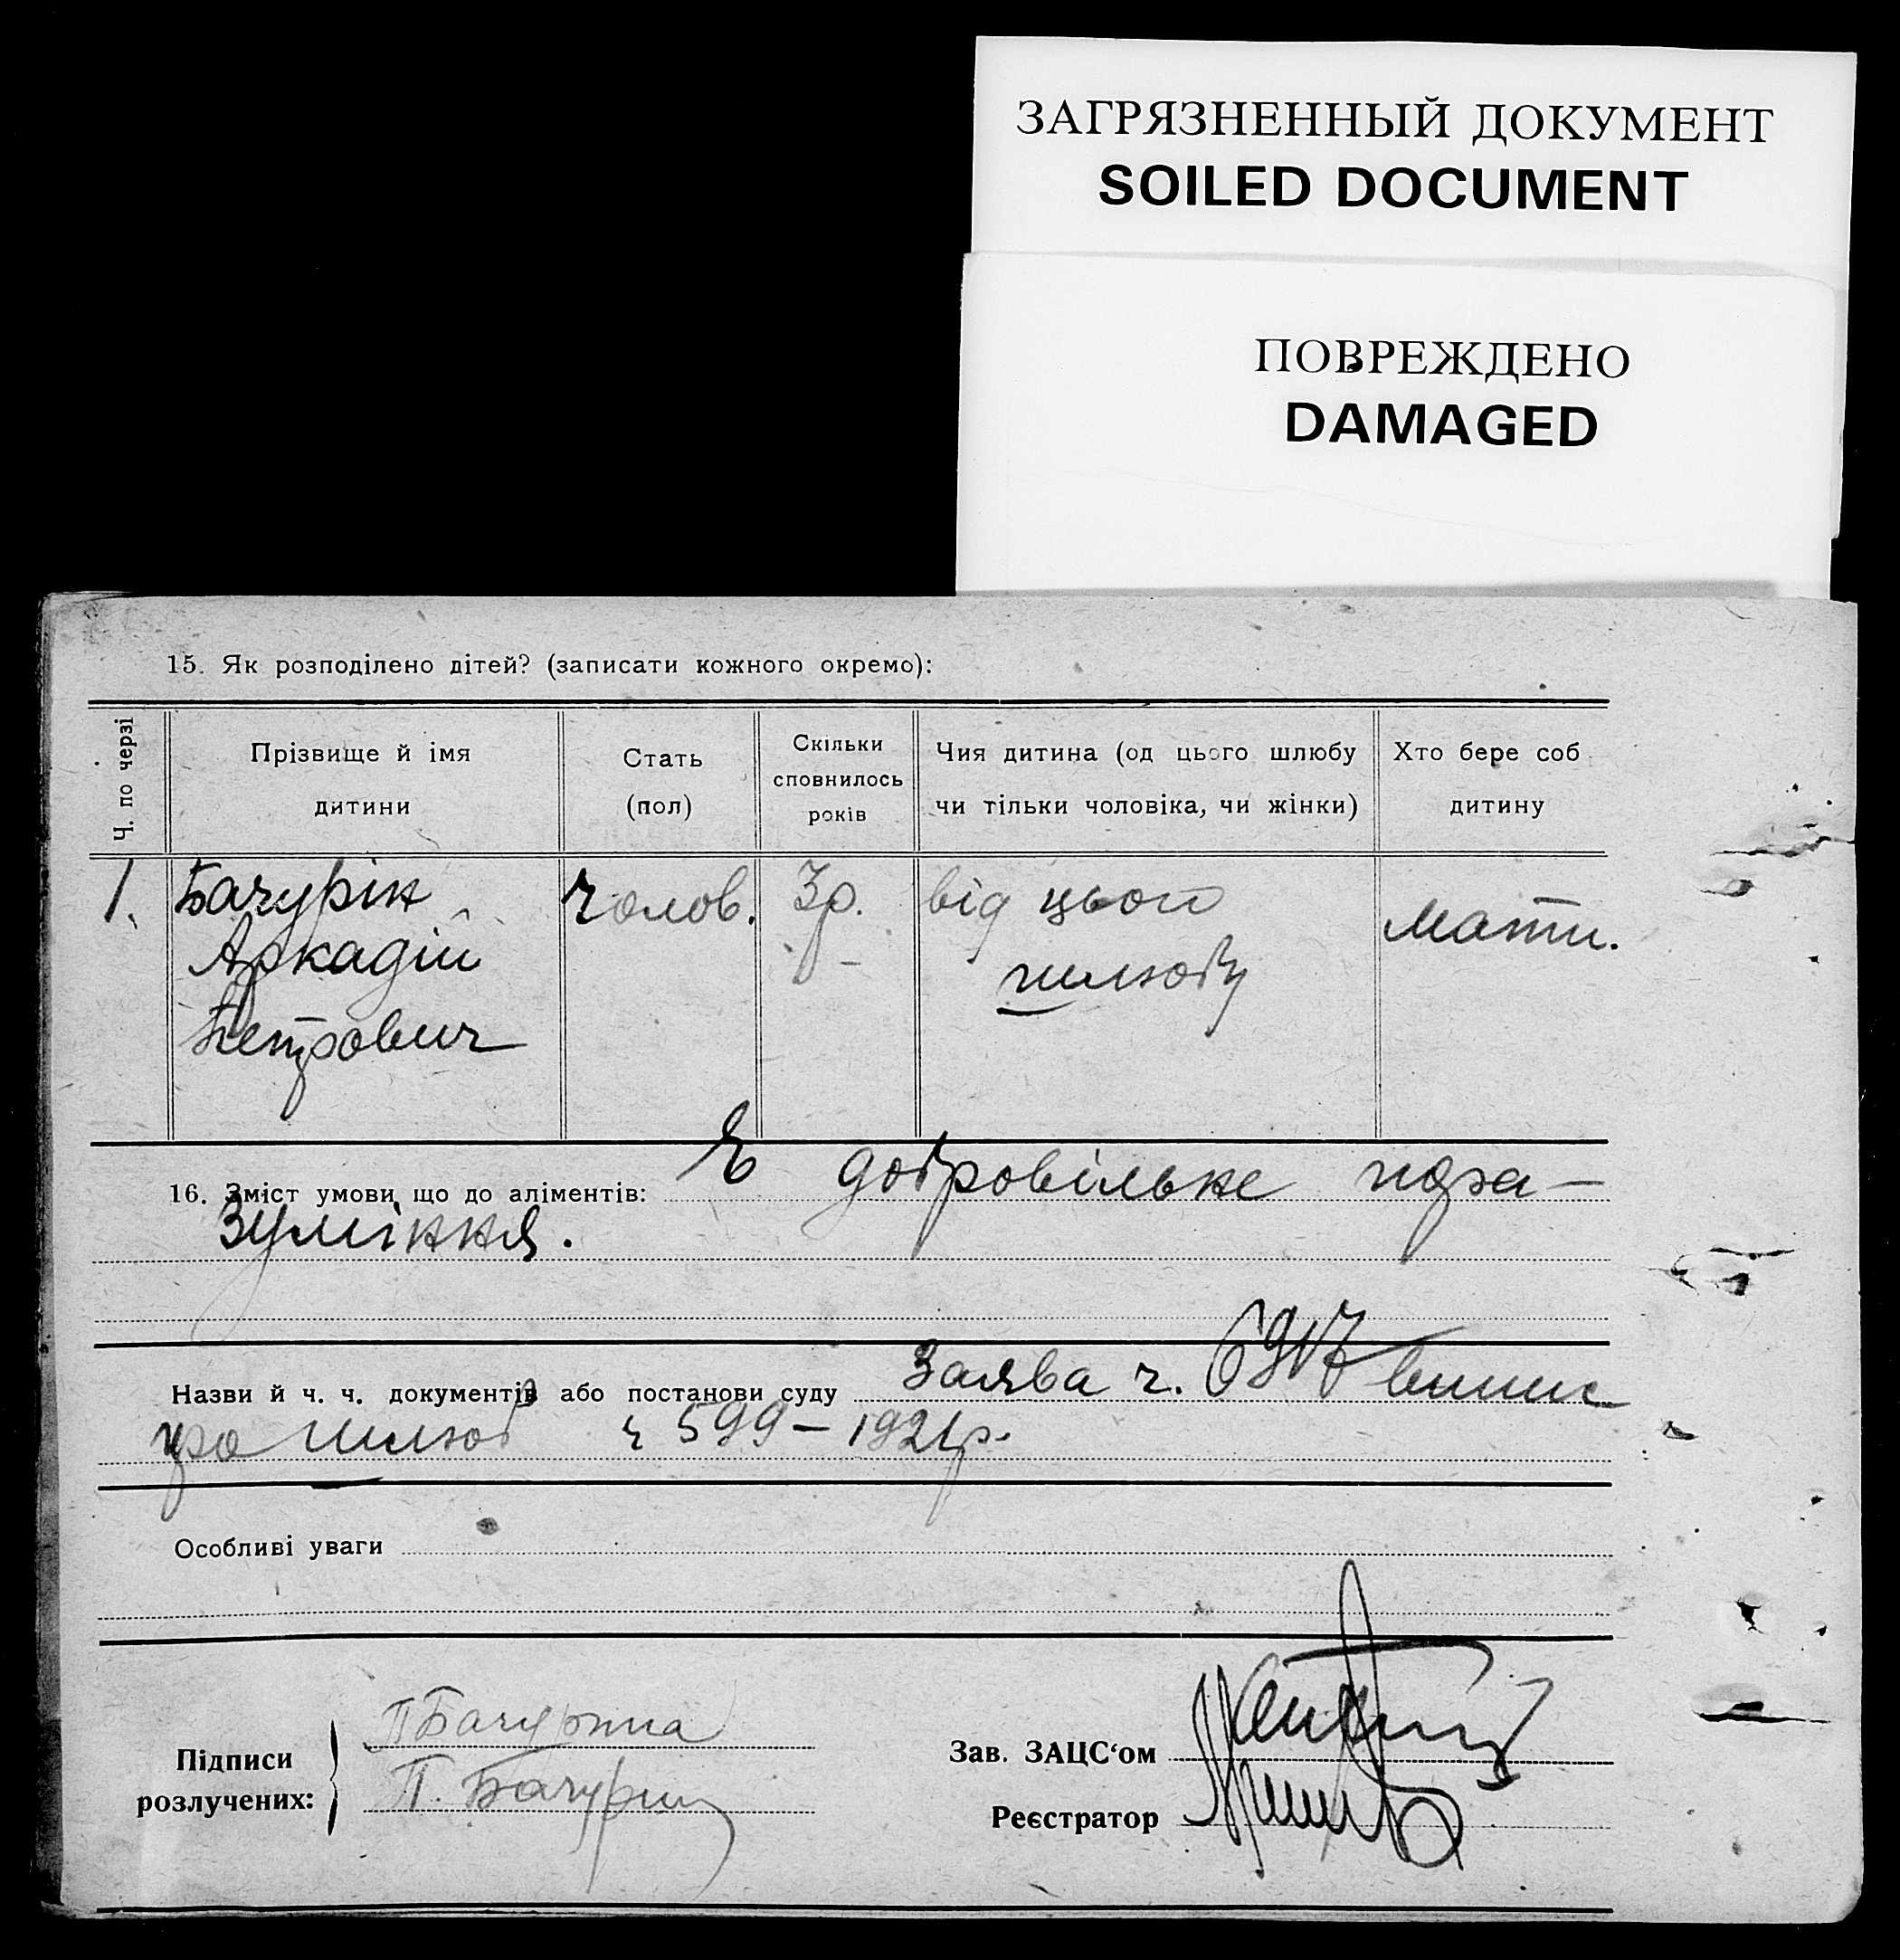 ЗАГРЯЗНЕННЫЙ ДОКУМЕНТ
SOILED DOCUMENT
ПОВРЕЖДЕНО
DAMAGED
15. Як розподілено дітей? (записати кожного окремо):
Ч. по черзі
Прізвище й імя
дитини
Стать
(пол)
Скільки
сповнилось
років
Чия дитина (од цього шлюбу
чи тільки чоловіка, чи жінки)
Хто бере соб
дитину
1. Бачурін чолов. 3р. від цього мати.
Аркадій шлюбу
Петрович
16. Зміст умови що до аліментів: Є добровільне пора-
зуміння.
Назви й ч. ч. документів або постанови суду Заява ч. випис
про шлюб ч 599 – 1921р.
Особливі уваги
Підписи
розлучених:
П Бачурина
П. Бачурин
Зав. ЗАЦС‘ом
Реєстратор